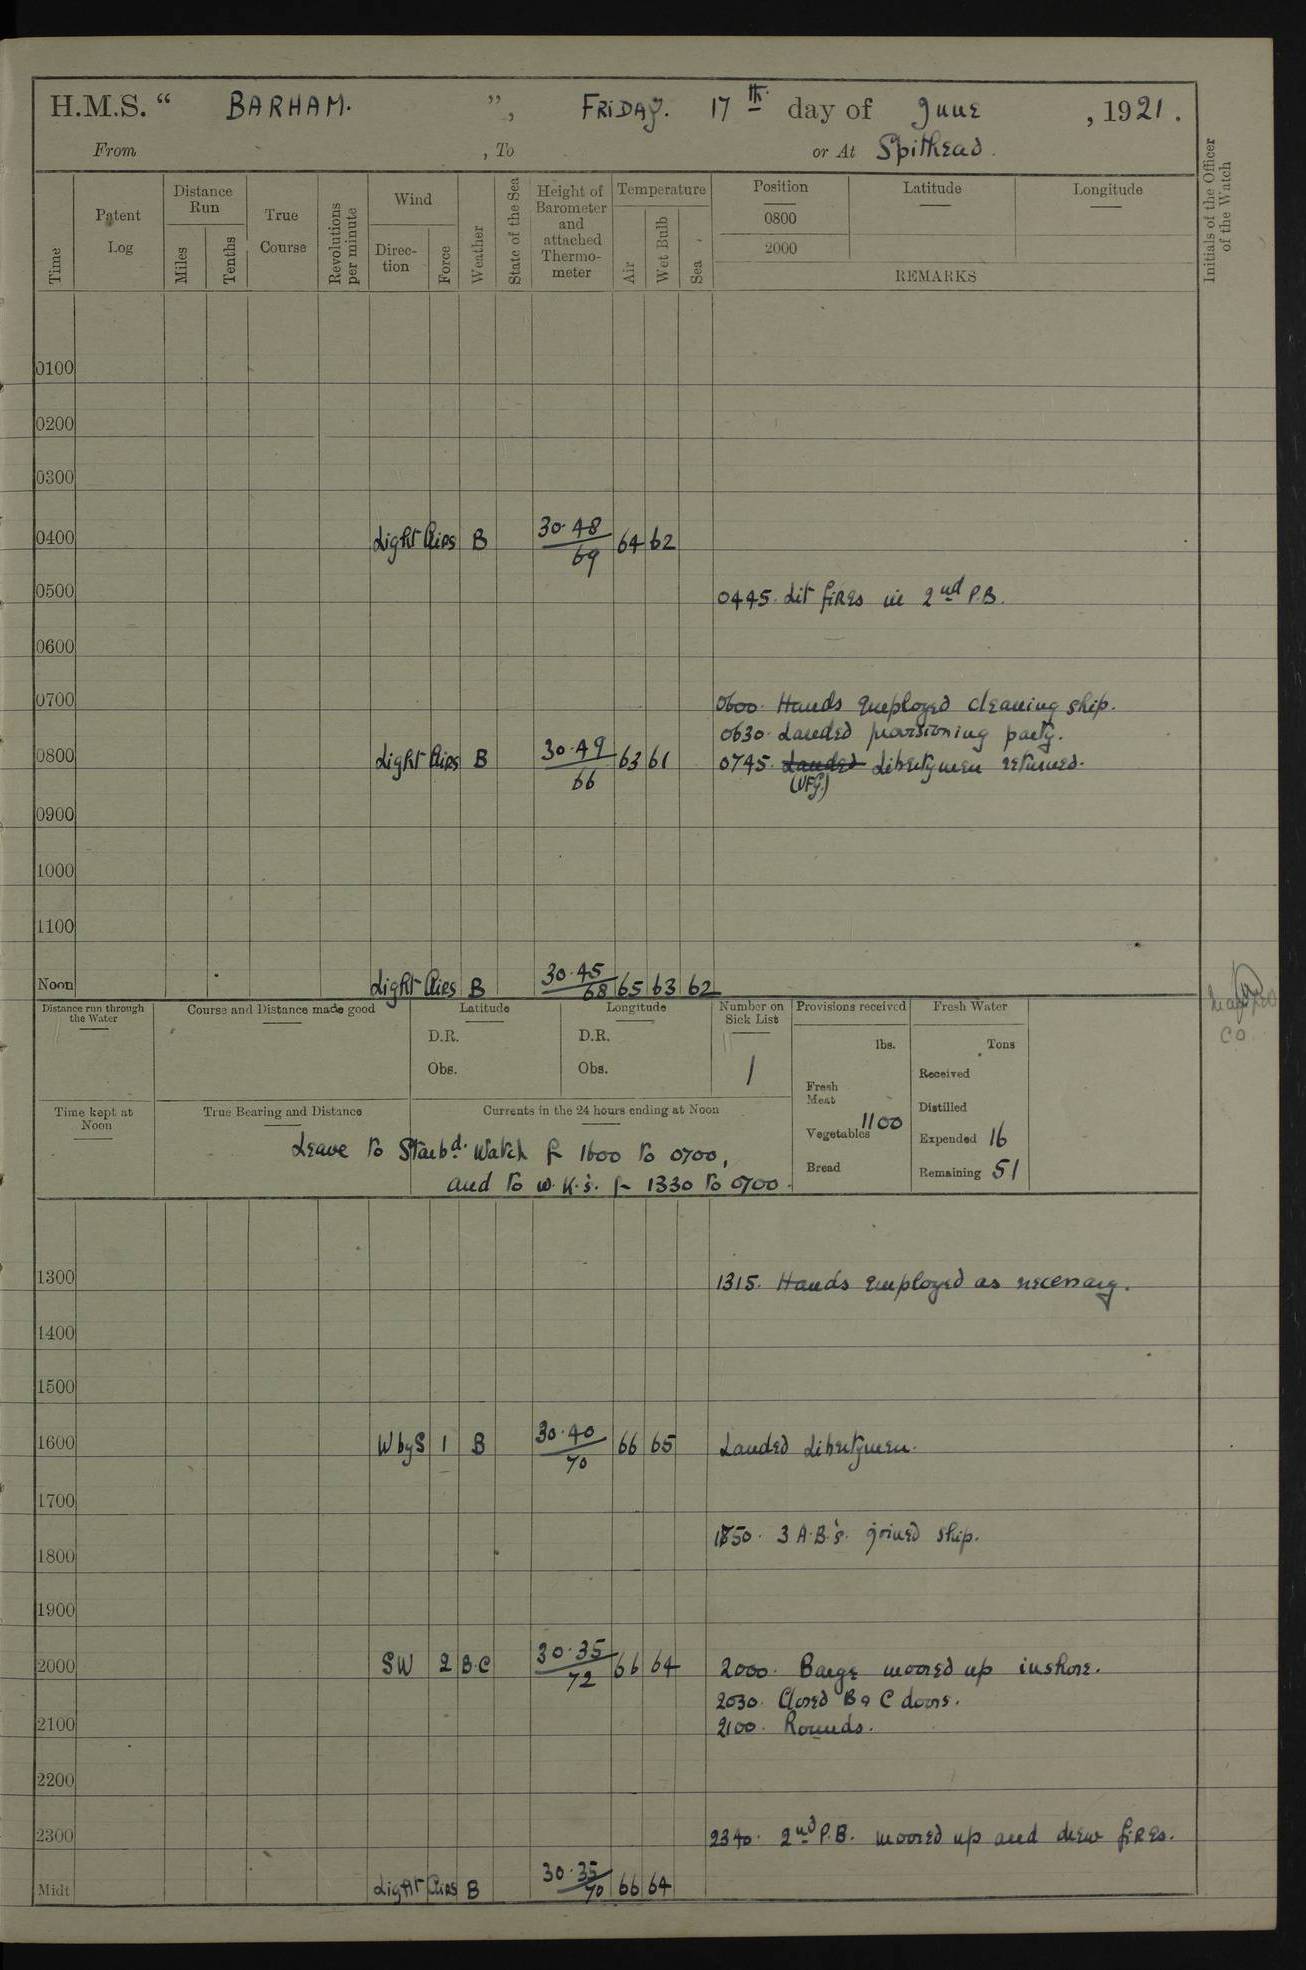 H.M.S. “ BARHAM. ”, FRIDAY. 17th. day of June, 1921.
From , To or At Spithead.
Time
Patent Log
Distance Run
Miles
Tenths
True Course
Revolutions per minute
Wind
Direction
Force
Weather
State of the Sea
Height of Barometer and attached Thermometer
Temperature
Air
Wet Bulb
Sea
Position
Latitude
Longitude
0800
2000
REMARKS
Initials of the Officer of the Watch
0100
0200
0300
0400 Light Airs B 30.48/69 64 62
0500 0445. Lit fires in 2nd P.B.
0600
0700 0600 Hands employed cleaning ship.
0630. Landed provisioning party.
0800 Light Airs B 30.49/66 63 61 0745. Landed Libertymen returned.
0900
1000
1100
Noon Light Airs B 30.45/68 65 63 62
Distance run through the Water
Course and Distance made good
Latitude
D.R.
Obs.
Longitude
D.R.
Obs.
Number on Sick List
1
Provisions received
lbs.
Fresh Meat
Vegetables 1100
Bread
Fresh Water
Tons
Received
Distilled
Expended 16
Remaining 51
Time kept at Noon
True Bearing and Distance
Currents in the 24 hours ending at Noon
Leave to Starbd. Watch fr 1600 to 0700,
and to W.K's. fr 1330 to 0700.
1300 1315. Hands employed as necessary.
1400
1500
1600 W by S 1 B 30.40/70 66 65 Landed Libertymen.
1700
1800 1850. 3 A.B's. joined ship.
1900
2000 SW 2 B.C 30.35/72 66 64 2000. Barge moored up inshore.
2030. Closed B & C doors.
2100 2100. Rounds.
2200
2300 2340. 2nd P.B. moored up and drew fires.
Midt Light Airs B 30.35/70 66 64